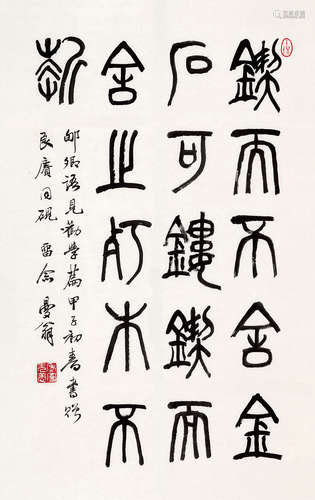 鍥而不舍金
石可鏤鍥而
舍之朽木不
折
郇卿語見勸學篇甲子初春書贈
良賡同硯留念曼翁